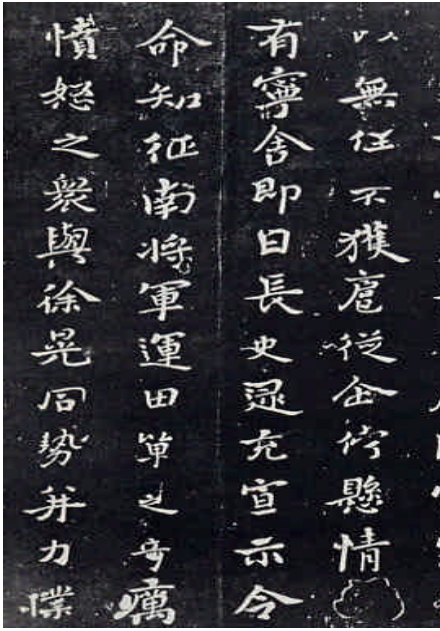 以無任不獲扈從企佇懸情
有寧舍即日長史逯充宣示令
命知征南將軍運田單之奇厲
憤怒之衆與徐晃同勢并力撲